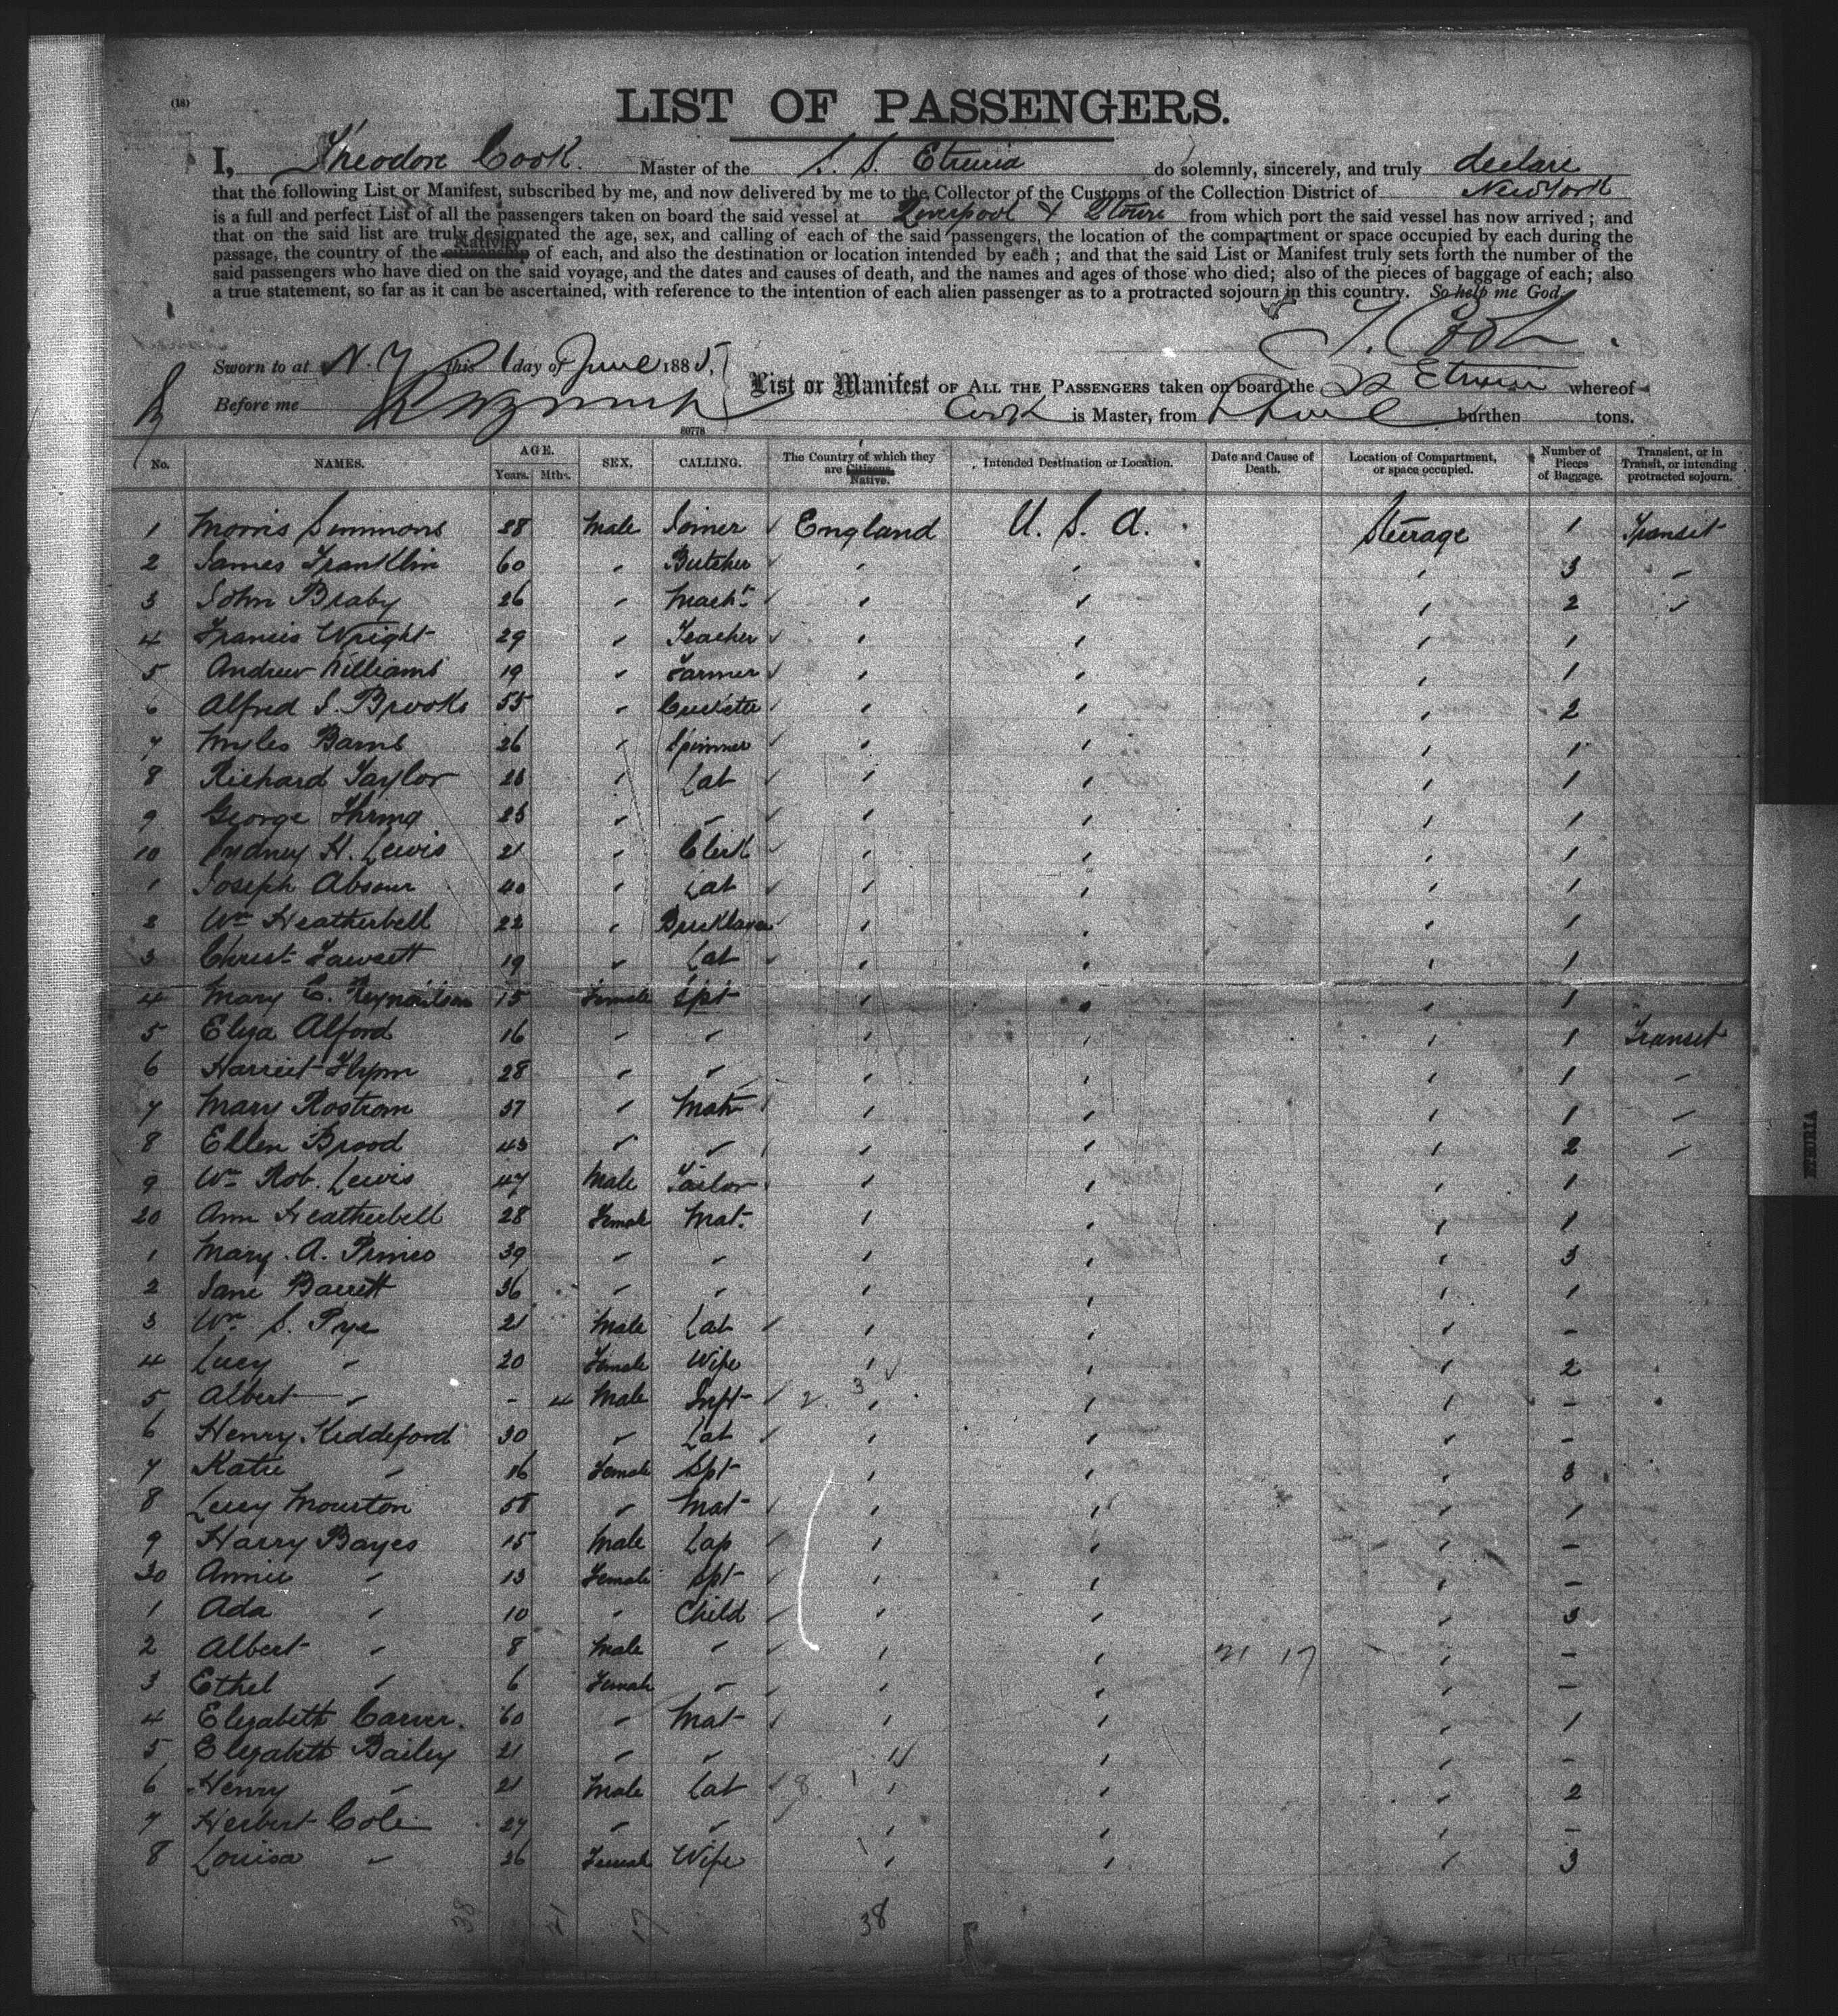 (18)
LIST OF PASSENGERS.
I, Theodore Cook. Master of the S. S. Etruria do solemnly, sincerely, and truly declare
that the following List or Manifest, subscribed by me, and now delivered by me to the Collector of the Customs of the Collection District of New York
is a full and perfect List of all the passengers taken on board the said vessel at Liverpool & Qtown from which port the said vessel has now arrived; and
that on the said list are truly designated the age, sex, and calling of each of the said passengers, the location of the compartment or space occupied by each during the
passage, the country of the citizenship Nativity of each, and also the destination or location intended by each; and that the said List or Manifest truly sets forth the number of the
said passengers who have died on the said voyage, and the dates and causes of death, and the names and ages of those who died; also of the pieces of baggage of each; also
a true statement, so far as it can be ascertained, with reference to the intention of each alien passenger as to a protracted sojourn in this country. So help me God.
T. Cook
Sworn to at N. Y this 1 day of June 1885,
List or Manifest OF ALL THE PASSENGERS taken on board the SS Etruria whereof
Before me
Cook is Master, from burthen tons.
No. NAMES. AGE. Years. Mths. SEX. CALLING. The Country of which they are Citizens. Native. Intended Destination or Location. Date and Cause of Death. Location of Compartment, or space occupied. Number of Pieces of Baggage. Transient, or in Transit, or intending protracted sojourn.
1 Morris Simmons 28 Male Joiner England U. S. A. Steerage 1 Transit
2 James Franklin 60 " Butcher " " " 3 "
3 John Braby 26 " Macht " " " 2 "
4 Francis Wright 29 " Teacher " " " 1
5 Andrew Williams 19 " Farmer " " " 1
6 Alfred J. Brooks 55 " " " " 2
7 Myles Barns 26 " Spinner " " " 1
8 Richard Taylor " Lab " " " 1
9 George " " " " " 1
10 Sydney H. Lewis 21 " Clerk " " " 1
1 Joseph 40 " Lab " " " 1
2 Wm Heatherbell 22 " Bricklayer " " " 1
3 Christ. Fawcett 19 " Lab " " " 1
4 Mary E. Reynoldson 15 Female Spt " " " 1
5 Eliza Alford 16 " " " " " 1 Transit
6 Harriet Flynn 28 " " " " " 1 "
7 Mary Rostrom 37 " Mat " " " 1 "
8 Ellen Brood 43 " " " " " 2 "
9 Wm Rob. Lewis 47 Male Tailor " " " 1
20 Ann Heatherbell 28 Female Mat. " " " 1
1 Mary. A. 39 " " " " " 3
2 Jane Barrett 36 " " " " " 1
3 Wm S. Pye 21 Male Lab " " " -
4 Lucy " 20 Female Wife " " " 2
5 Albert " - 4 Male Inft " " " -
6 Henry Kiddeford 30 " Lab " " " -
7 Katie " 16 Female Spt " " " 3
8 Lucy Mourton 58 " Mat " " " 1
9 Harry Bayes 15 Male Lab " " " -
30 Annie " 13 Female Spt " " " -
1 Ada " 10 " Child " " " 3
2 Albert " 8 Male " " " 21 17 " -
3 Ethel " 6 Female " " " " -
4 Elizabeth Carver. 60 " Mat " " " 1
5 Elizabeth Bailey 21 " " " " " -
6 Henry " 21 Male Lab " " " 2
7 Herbert Cole 27 " " " " " -
8 Louisa " 26 Female Wife " " " 3
38 21 17 38
ETRURIA